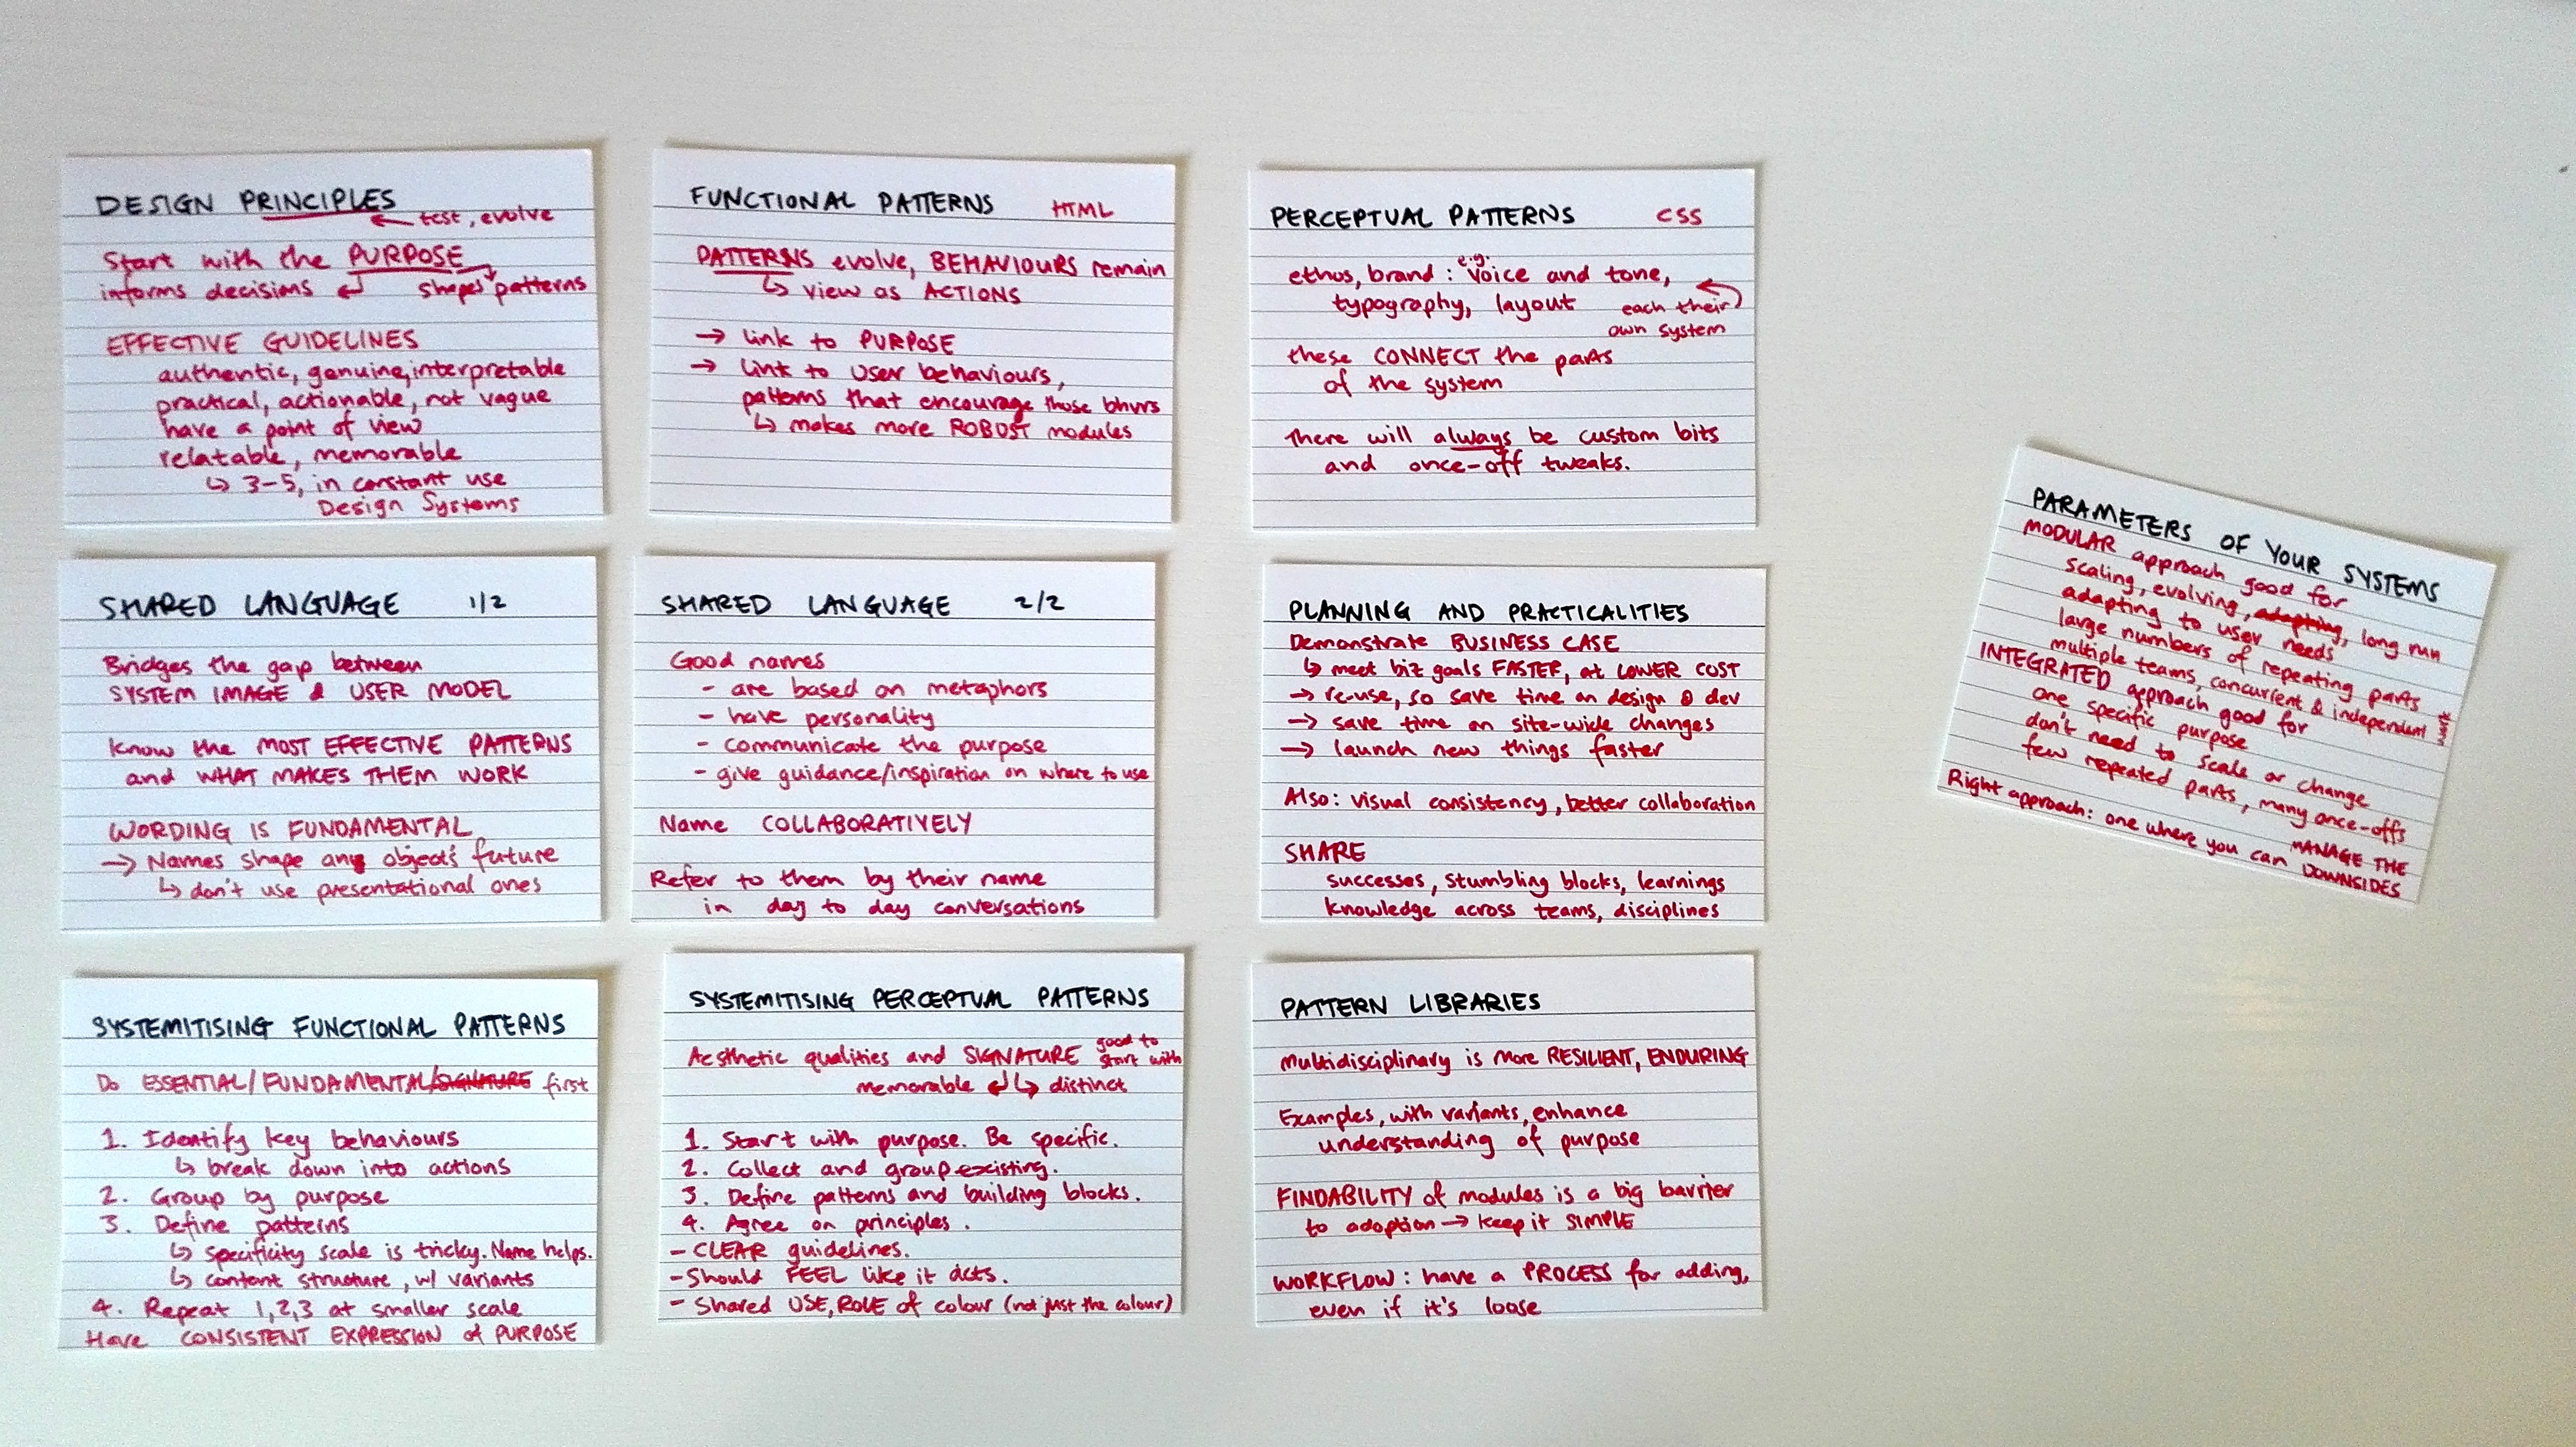 DESIGN PRINCIPLES
← test, evolve
Start with the PURPOSE
informs decisions ↲ shapes patterns
EFFECTIVE GUIDELINES
authentic, genuine, interpretable
practical, actionable, not vague
have a point of view
relatable, memorable
↳ 3-5, in constant use
Design Systems
FUNCTIONAL PATTERNS HTML
PATTERNS evolve, BEHAVIOURS remain
↳ view as ACTIONS
→ link to PURPOSE
→ link to user behaviours,
patterns that encourage those bhvrs
↳ makes more ROBUST modules
PERCEPTUAL PATTERNS CSS
ethos, brand : e.g. voice and tone,
typography, layout each their
own system
these CONNECT the parts
of the system
There will always be custom bits
and once-off tweaks.
SHARED LANGUAGE 1/2
Bridges the gap between
SYSTEM IMAGE & USER MODEL
Know the MOST EFFECTIVE PATTERNS
and WHAT MAKES THEM WORK
WORDING IS FUNDAMENTAL
→ Names shape any object's future
↳ don't use presentational ones
SHARED LANGUAGE 2/2
Good names
- are based on metaphors
- have personality
- communicate the purpose
- give guidance/inspiration on where to use
Name COLLABORATIVELY
Refer to them by their name
in day to day conversations
PLANNING AND PRACTICALITIES
Demonstrate BUSINESS CASE
↳ meet biz goals FASTER, at LOWER COST
→ re-use, so save time on design & dev
→ save time on site-wide changes
→ launch new things faster
Also: visual consistency, better collaboration
SHARE
successes, stumbling blocks, learnings
knowledge across teams, disciplines
SYSTEMITISING FUNCTIONAL PATTERNS
Do ESSENTIAL/FUNDAMENTAL/SIGNATURE first
1. Identify key behaviours
↳ break down into actions
2. Group by purpose
3. Define patterns
↳ specificity scale is tricky. Name helps.
↳ content structure, w/ variants
4. Repeat 1,2,3 at smaller scale
Have CONSISTENT EXPRESSION of PURPOSE
SYSTEMITISING PERCEPTUAL PATTERNS
Aesthetic qualities and SIGNATURE good to start with
memorable ↲ ↳ distinct
1. Start with purpose. Be specific.
2. Collect and group existing.
3. Define patterns and building blocks.
4. Agree on principles.
- CLEAR guidelines.
- Should FEEL like it acts.
- Shared USE, ROLE of colour (not just the colour)
PATTERN LIBRARIES
multidisciplinary is more RESILIENT, ENDURING
Examples, with variants, enhance
understanding of purpose
FINDABILITY of modules is a big barrier
to adoption → keep it SIMPLE
WORKFLOW : have a PROCESS for adding,
even if it's loose
PARAMETERS OF YOUR SYSTEMS
MODULAR approach good for
scaling, evolving, adapting, long run
adapting to user needs
large numbers of repeating parts
multiple teams, concurrent & independent
INTEGRATED approach good for
one specific purpose
don't need to scale or change
few repeated parts, many once-offs
Right approach: one where you can MANAGE THE
DOWNSIDES